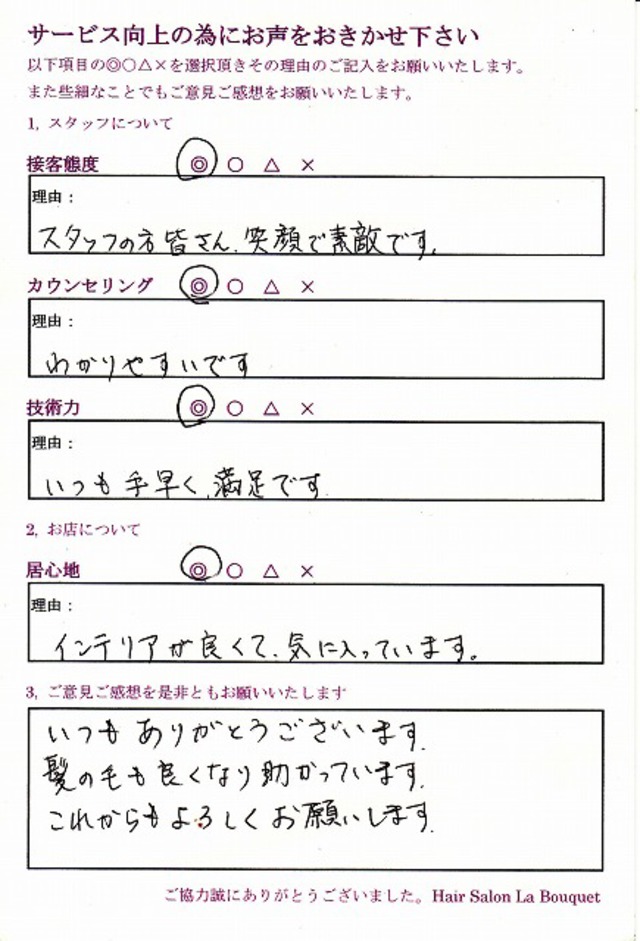 サービス向上の為にお声をおきかせ下さい
以下項目の◎○△×を選択頂きその理由のご記入をお願いいたします。
また些細なことでもご意見ご感想をお願いいたします。
1, スタッフについて
接客態度 ◎ ○ △ ×
理由：
スタッフの方皆さん、笑顔で素敵です。
カウンセリング ◎ ○ △ ×
理由：
わかりやすいです
技術力 ◎ ○ △ ×
理由：
いつも手早く、満足です
2, お店について
居心地 ◎ ○ △ ×
理由：
インテリアが良くて、気に入っています。
3, ご意見ご感想を是非ともお願いいたします
いつもありがとうございます。
髪の毛も良くなり助かっています。
これからもよろしくお願いします。
ご協力誠にありがとうございました。Hair Salon La Bouquet